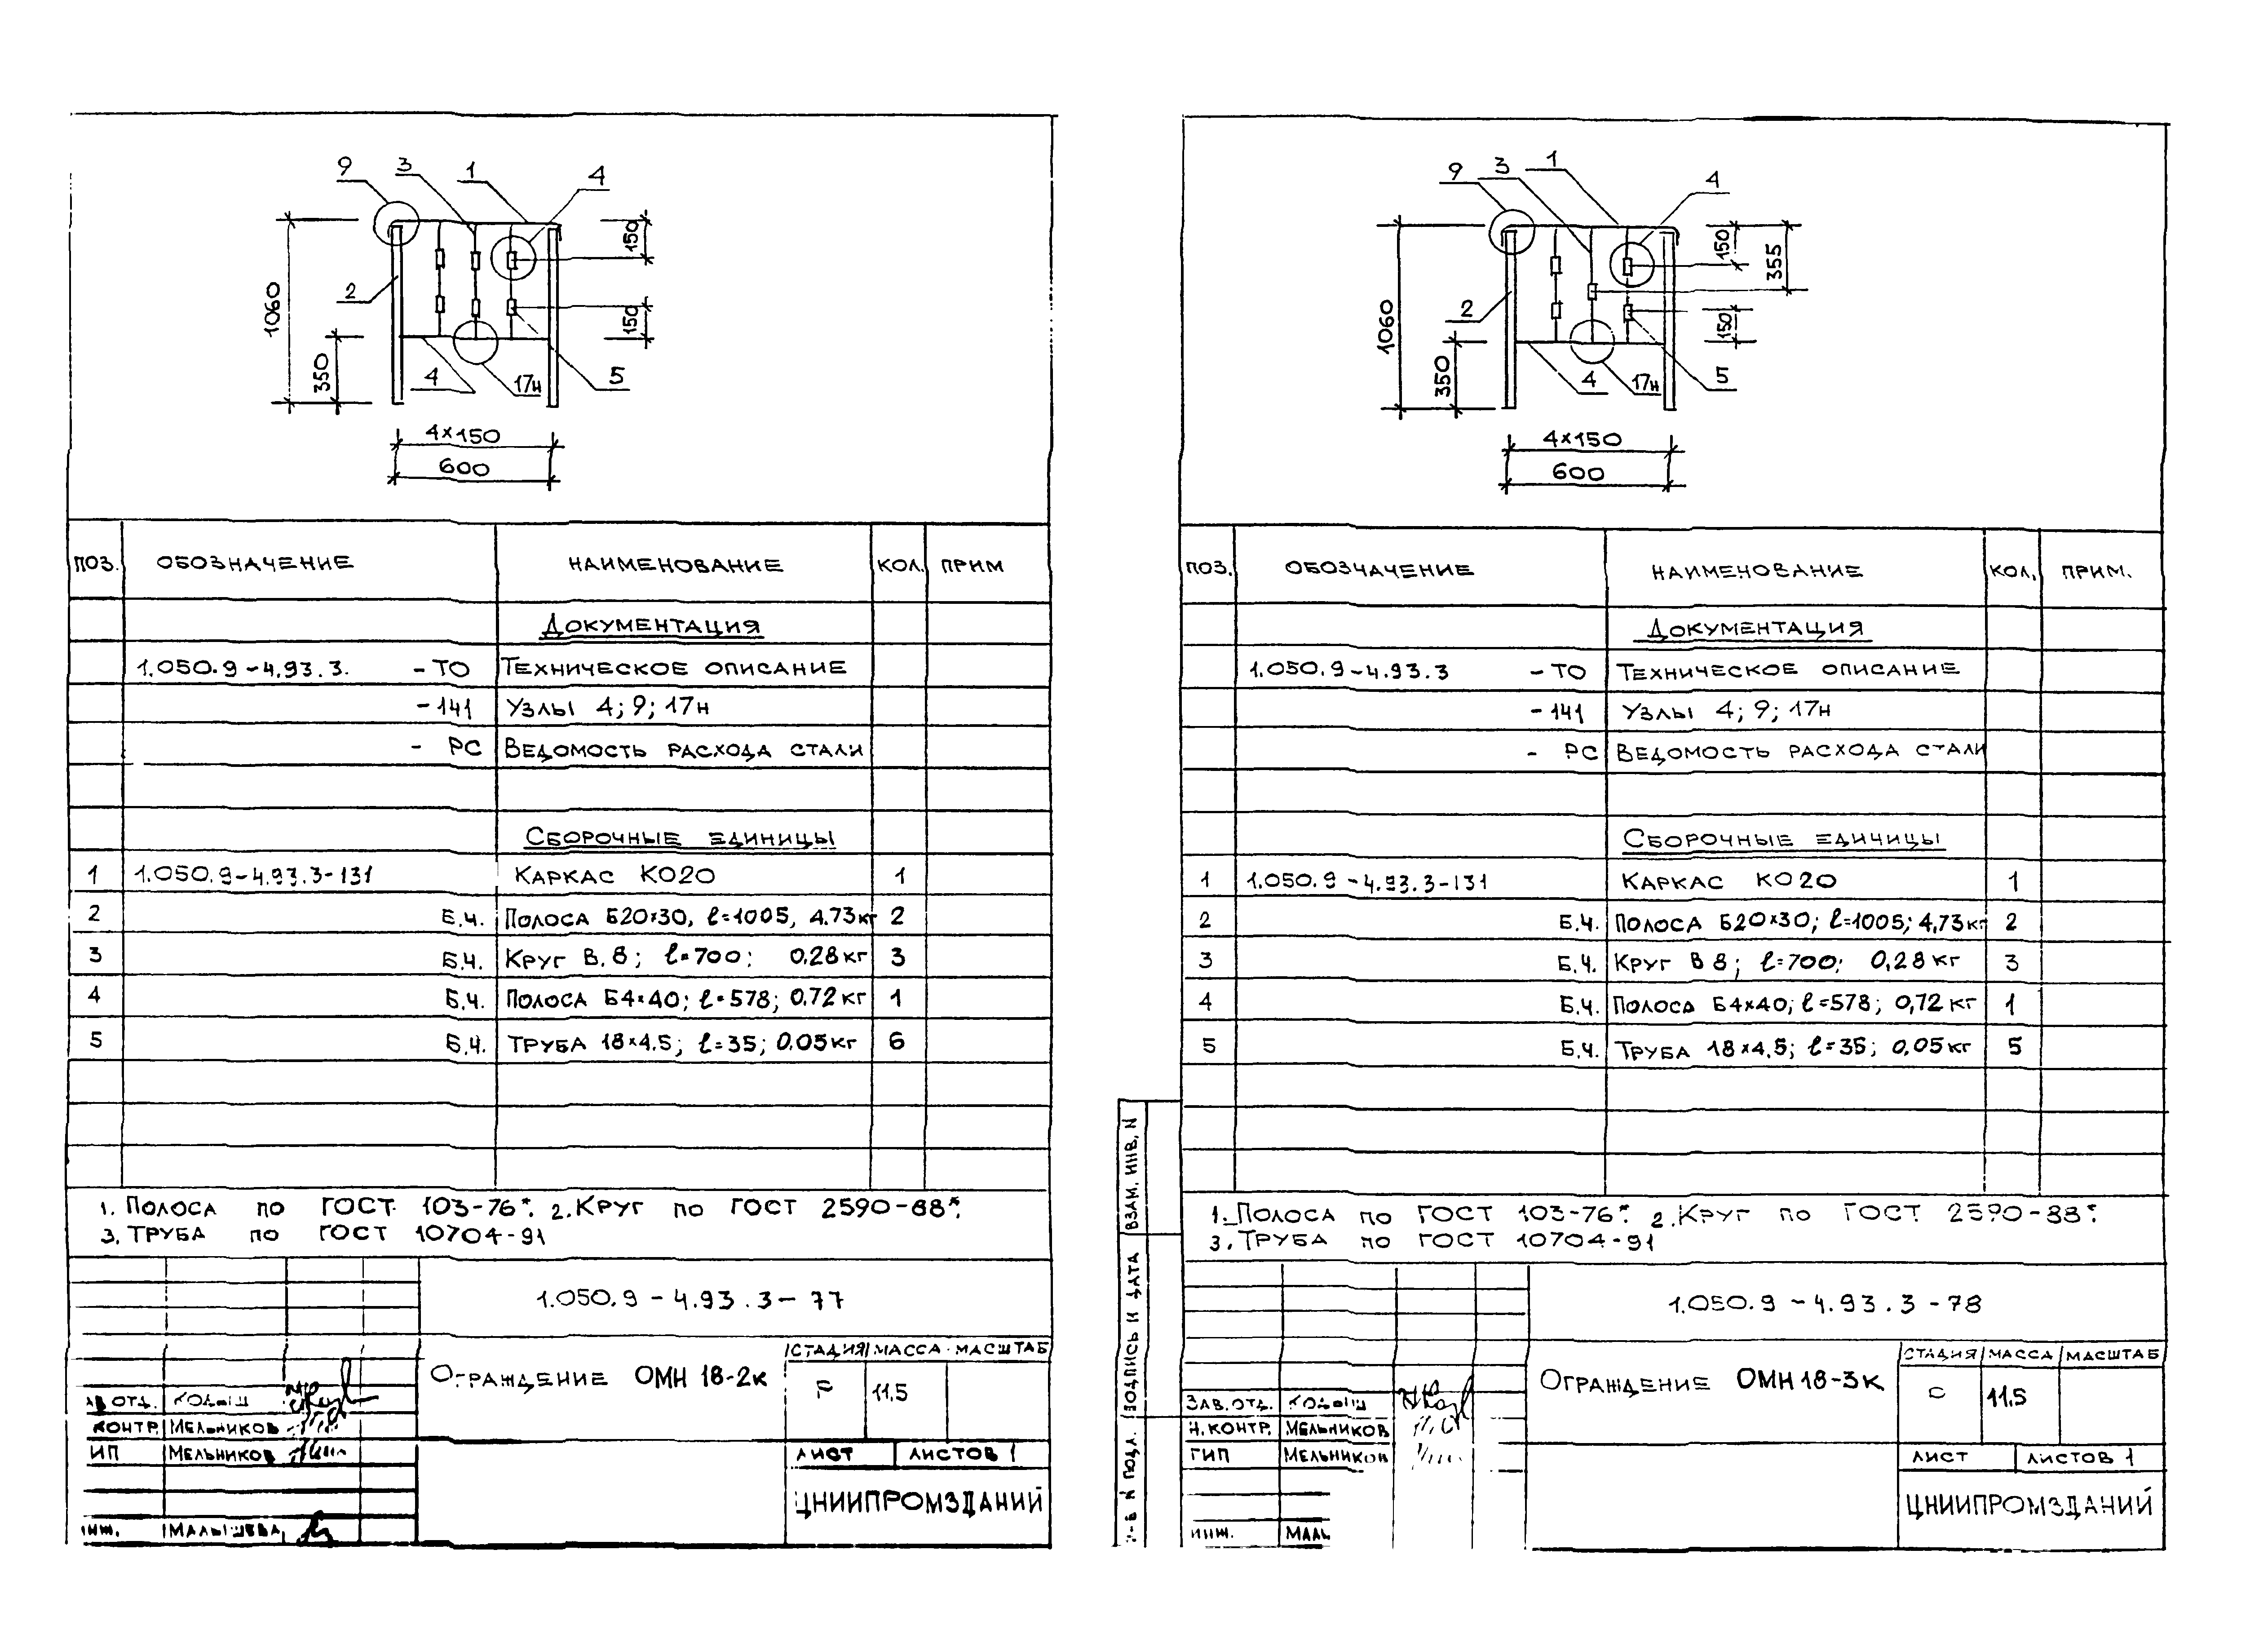 9 3 1 4
1060
350
2
150
150
4 17н 5
4×150
600
ПОЗ. ОБОЗНАЧЕНИЕ НАИМЕНОВАНИЕ КОЛ. ПРИМ
ДОКУМЕНТАЦИЯ
1.050.9-4.93.3. -ТО ТЕХНИЧЕСКОЕ ОПИСАНИЕ
-141 УЗЛЫ 4; 9; 17н
- РС ВЕДОМОСТЬ РАСХОДА СТАЛИ
СБОРОЧНЫЕ ЕДИНИЦЫ
1 1.050.9-4.93.3-131 КАРКАС КО20 1
2 Б.Ч. ПОЛОСА Б20×30, ℓ=1005, 4.73кг 2
3 Б.Ч. КРУГ В.8; ℓ=700; 0,28кг 3
4 Б.Ч. ПОЛОСА Б4×40; ℓ=578; 0,72кг 1
5 Б.Ч. ТРУБА 18×4.5; ℓ=35; 0.05кг 6
1. ПОЛОСА ПО ГОСТ 103-76*. 2. КРУГ ПО ГОСТ 2590-88*.
3. ТРУБА ПО ГОСТ 10704-91
1.050.9-4.93.3-77
ОГРАЖДЕНИЕ ОМН 18-2к
СТАДИЯ МАССА МАСШТАБ
Р 11,5
АВ ОТД. КОДЫШ
КОНТР. МЕЛЬНИКОВ
ИП МЕЛЬНИКОВ
ЛИСТ ЛИСТОВ 1
ЦНИИПРОМЗДАНИЙ
ИНЖ. МАЛЫШЕВА
9 3 1 4
1060
350
2
150
355
150
4 17н 5
4×150
600
ПОЗ. ОБОЗНАЧЕНИЕ НАИМЕНОВАНИЕ КОЛ. ПРИМ.
ДОКУМЕНТАЦИЯ
1.050.9-4.93.3 -ТО ТЕХНИЧЕСКОЕ ОПИСАНИЕ
-141 УЗЛЫ 4; 9; 17н
- РС ВЕДОМОСТЬ РАСХОДА СТАЛИ
СБОРОЧНЫЕ ЕДИНИЦЫ
1 1.050.9-4.93.3-131 КАРКАС КО20 1
2 Б.Ч. ПОЛОСА Б20×30; ℓ=1005; 4,73кг 2
3 Б.Ч. КРУГ В 8; ℓ=700; 0,28кг 3
4 Б.Ч. ПОЛОСА Б4×40; ℓ=578; 0,72кг 1
5 Б.Ч. ТРУБА 18×4,5; ℓ=35; 0,05кг 5
1. ПОЛОСА ПО ГОСТ 103-76*. 2. КРУГ ПО ГОСТ 2590-88*.
3. ТРУБА ПО ГОСТ 10704-91
1.050.9-4.93.3-78
ОГРАЖДЕНИЕ ОМН 18-3К
СТАДИЯ МАССА МАСШТАБ
11,5
ЗАВ. ОТД. КОДЫШ
Н. КОНТР. МЕЛЬНИКОВ
ГИП МЕЛЬНИКОВ
ЛИСТ ЛИСТОВ 1
ЦНИИПРОМЗДАНИЙ
ИНЖ. МАЛЫ
ВЗАМ. ИНВ. N
ПОДПИСЬ И ДАТА
ПОДЛ.